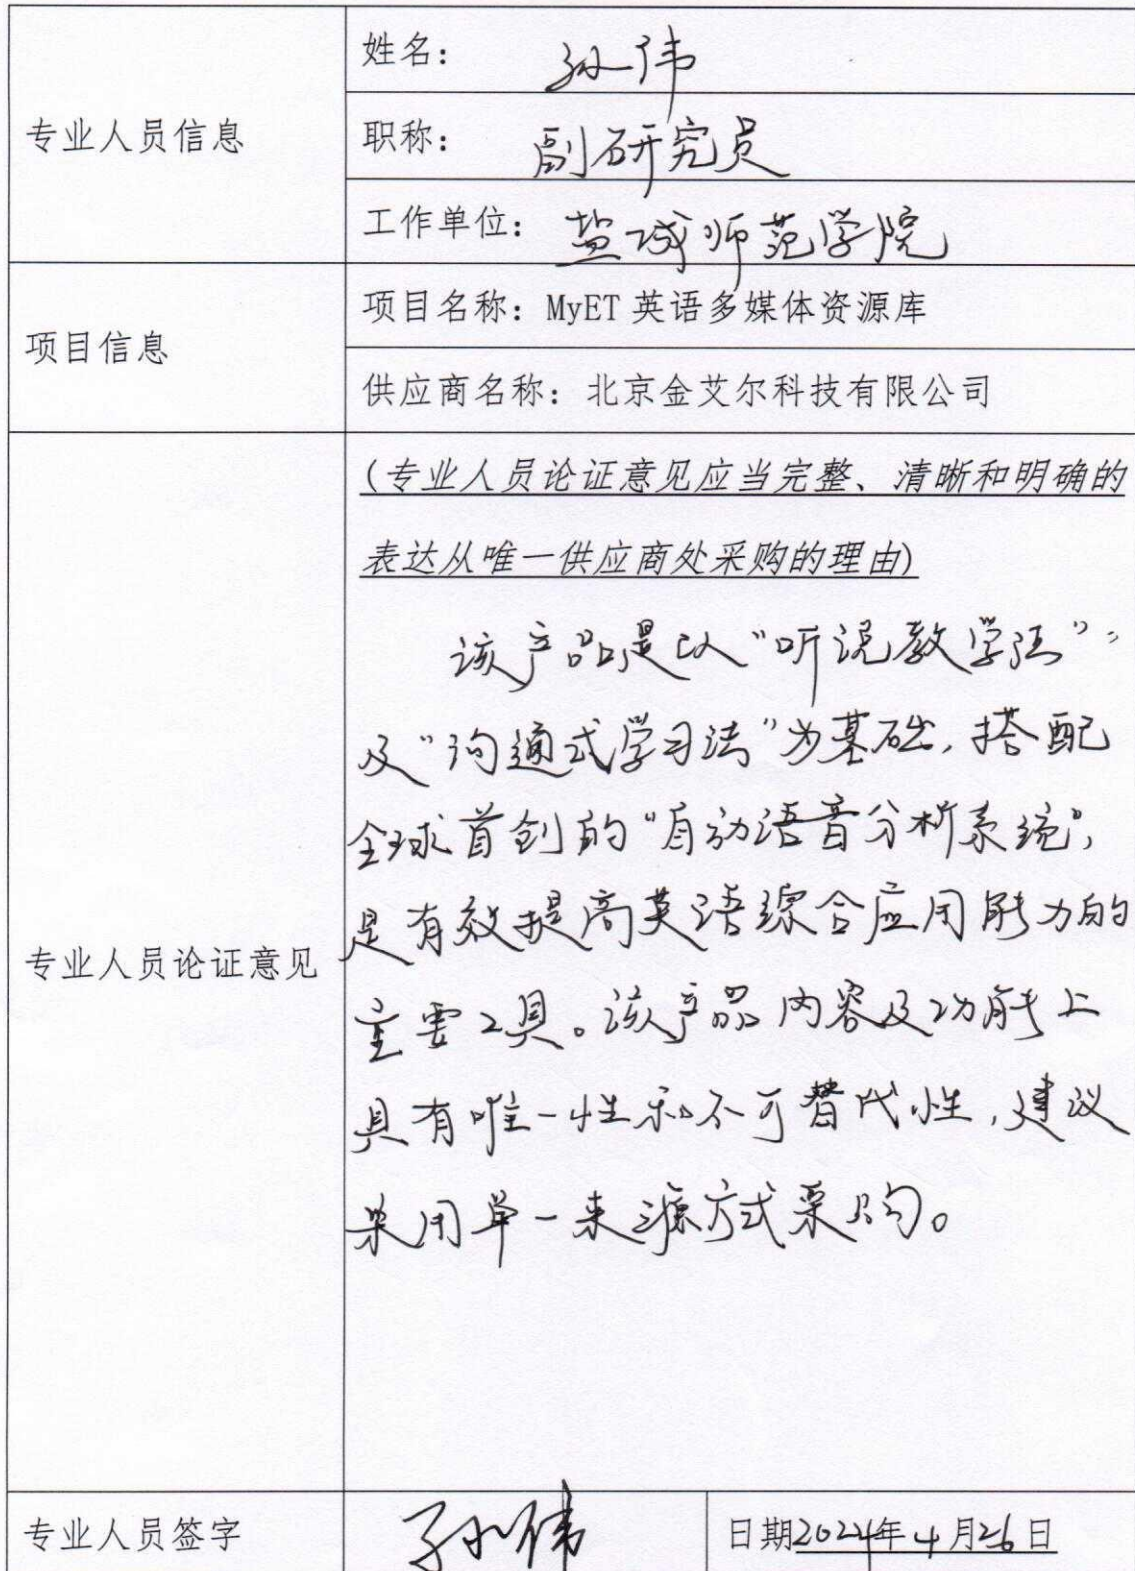 专业人员信息
姓名：孙伟
职称：副研究员
工作单位：盐城师范学院
项目信息
项目名称：MyET 英语多媒体资源库
供应商名称：北京金艾尔科技有限公司
专业人员论证意见
(专业人员论证意见应当完整、清晰和明确的
表达从唯一供应商处采购的理由)
该产品是以“听说教学法”
及“沟通式学习法”为基础，搭配
全球首创的“自动语音分析系统”，
是有效提高英语综合应用能力的
重要工具。该产品内容及功能上
具有唯一性和不可替代性，建议
采用单一来源方式采购。
专业人员签字
孙伟
日期2024年4月26日